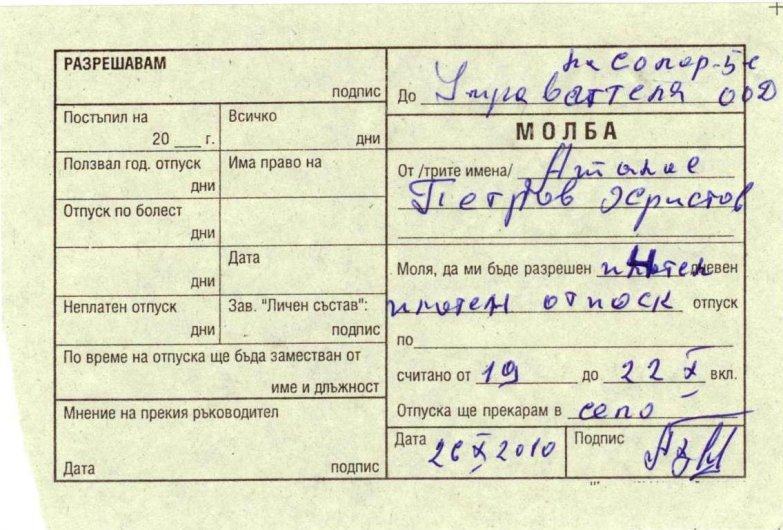 РАЗРЕШАВАМ
подпис
Постъпил на
20 ___ г.
Всичко
дни
Ползвал год. отпуск
дни
Има право на
Отпуск по болест
дни
дни
Дата
Неплатен отпуск
дни
Зав. "Личен състав":
подпис
По време на отпуска ще бъда заместван от
име и длъжност
Мнение на прекия ръководител
Дата
подпис
на
До Управаттеля ООД
МОЛБА
От /трите имена/
Петров Христов
Моля, да ми бъде разрешен дневен
платен отпоск отпуск
по
считано от 19 до 22 X вкл.
Отпуска ще прекарам в село
Дата
26 X 2010
Подпис